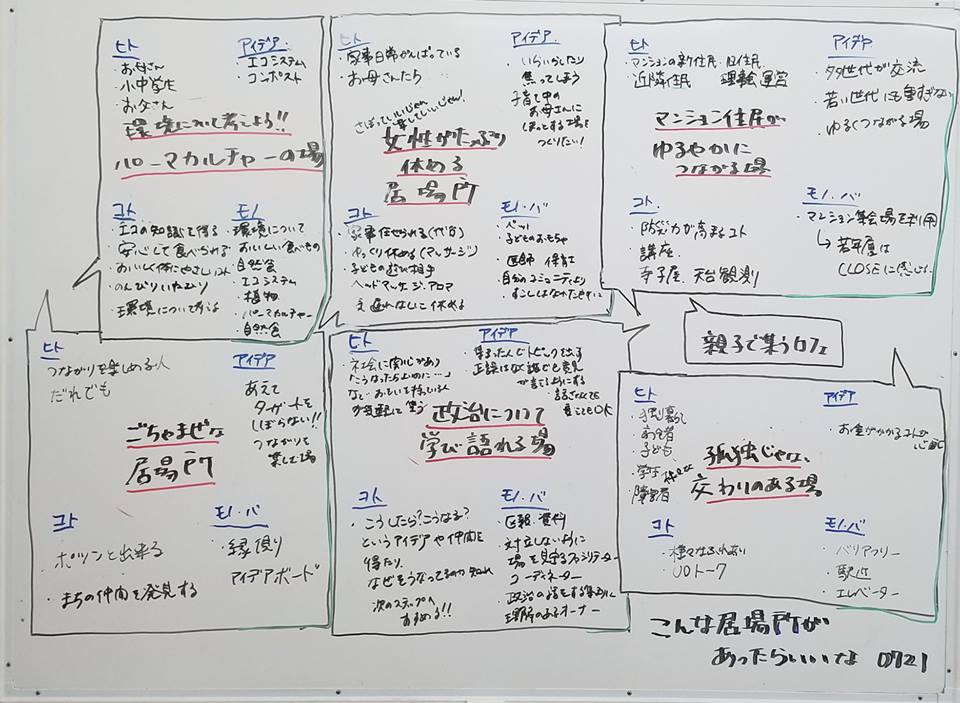 ヒト
・お母さん
・小中学生
・お父さん
アイデア
・エコシステム
・コンポスト
環境について考えよう!!
パーマカルチャーの場
コト
・エコの知識を得る
・安心して食べられる
・のんびりいやひり
・環境について考える
モノ
・環境について
・おいしい食べもの
・自然食
・エコシステム
・植物
・パーマカルチャー
・自然食
ヒト
・家事日常がんばっている
お母さんたち
アイデア
・いらいらしたり
焦ってしまう
子育て中の
お母さんに
ほっとする場を
つくりたい!
さぼっていいじゃん
楽していいじゃん!
女性がたっぷり
休める
居場所
コト
・家事任せられる(代行)
・ゆっくり休める(マッサージ)
・子どもの遊び相手
・ヘッドマッサージ・アロマ
・気遅れなしに休める
モノ・バ
・ベット
・子どものおもちゃ
・医師 保育士
・自分のコミュニティより
少しはなれた
ヒト
・マンションの新住民・旧住民
近隣住民 理事会運営
アイデア
・多世代が交流
・若い世代にも重すぎない
・ゆるくつながる場
マンション住民が
ゆるやかに
つながる場
コト
・防災力が高まるコト
・講座
・寺子屋、天台観測
モノ・バ
・マンション集会場を利用
↳若年層は
CLOSEに感じ
親子で集うカフェ
ヒト
つながりを楽しめる人
だれでも
アイデア
あえて
ターゲットを
しぼらない!!
つながりを
楽しむ場
ごちゃまぜな
居場所
コト
・ポツンと出来る
・まちの仲間を発見する
モノ・バ
・縁側
・アイデアボード
ヒト
・社会に関心があり
「こうなったらいいのに…」
アイデア
・集まった人でトピックを出す
・正誤はなく誰でも意見
が言えるようにする
話さなくても
見ててもOK
政治について
学び語れる場
コト
・こうしたら?こうなる?
というアイデアや仲間を
得たり、
なぜそうなってるのか知れ
次のステップへ
すすめる!!
モノ・バ
・区報・資料
・対立しないように
場を見守るファシリテーター
コーディネーター
・政治の話をする集まりに
理解のあるオーナー
ヒト
・独り暮らし
・子ども
・学生
・障害者
アイデア
・お金がかかるコトが心配
孤独じゃない
交わりのある場
コト
・様々なふれあい
・UDトーク
モノ・バ
・バリアフリー
・駅近
・エレベーター
こんな居場所が
あったらいいな 0721